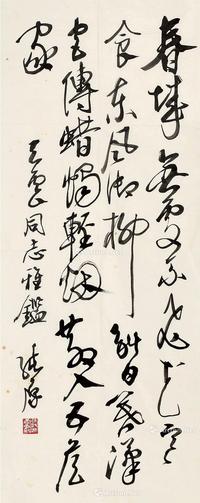 春城無處不飛花寒
食東風御柳斜日暮漢
宮傳蜡燭輕烟散入五侯
家
同志雅鑑